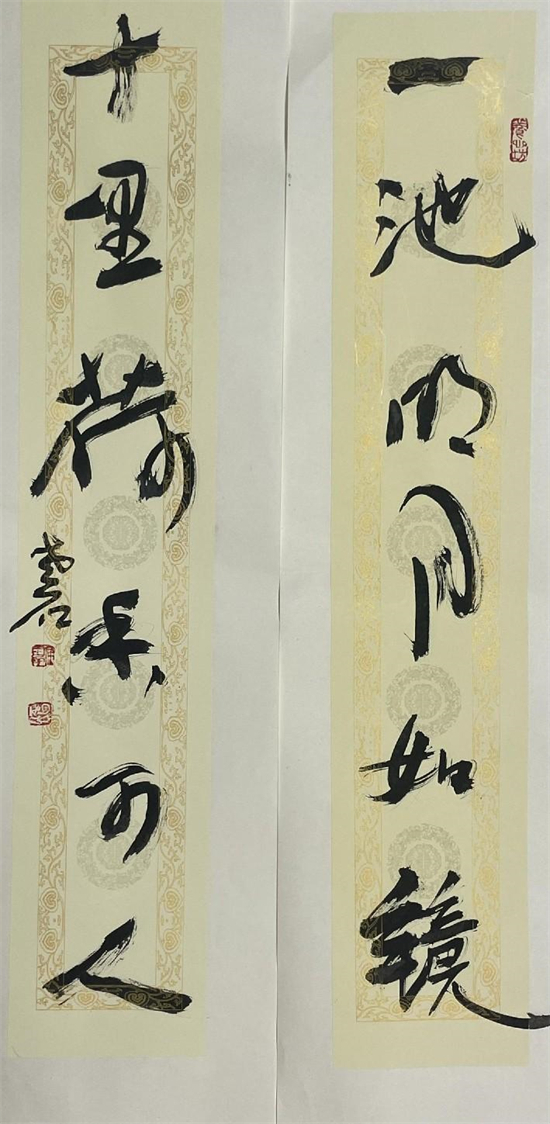 一池明月如镜
十里荷香可人